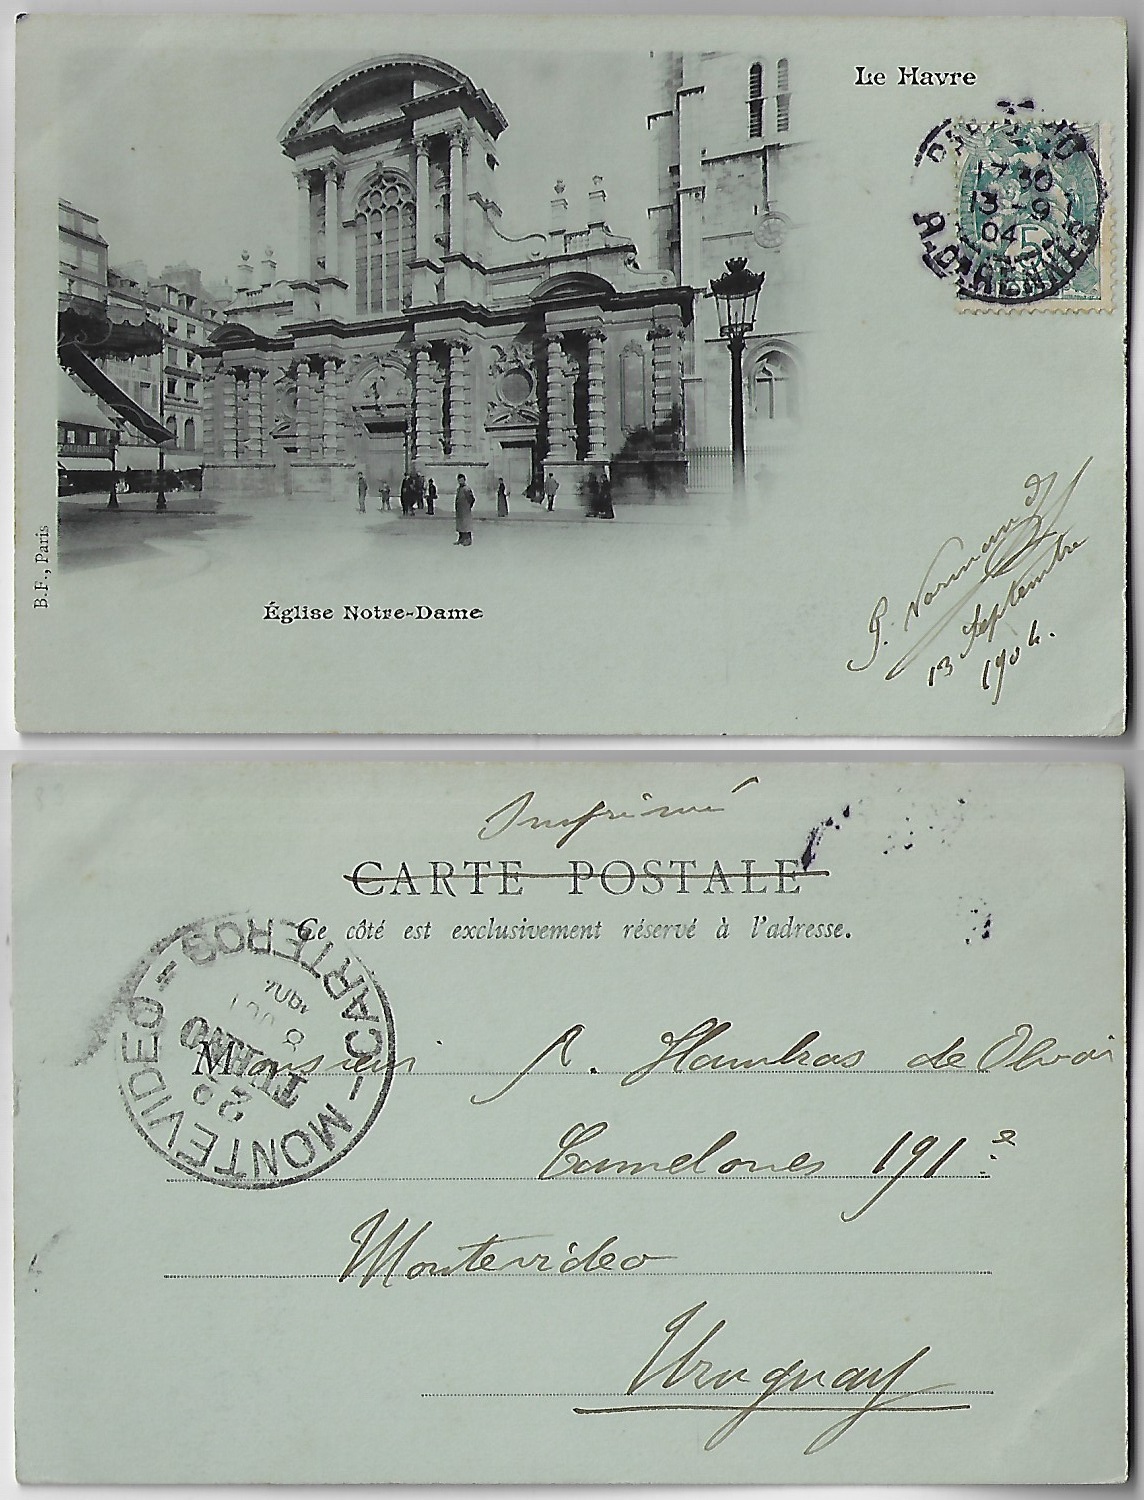 Le Havre
17 30
13 - 9
04
5
B.F., Paris
Église Notre-Dame
P. Normand
13 Septembre
1904.
Imprimé
CARTE POSTALE
Ce côté est exclusivement réservé à l'adresse.
MONTEVIDEO - CARTEROS
1904
TURNO
2º
Monsieur A. Hambras de Olivar
Camelones 191.e
Montevideo
Uruguay